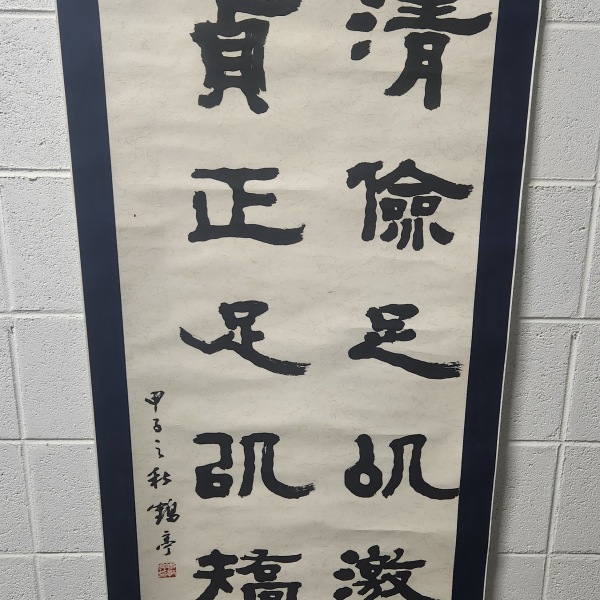 清儉足以激
貞正足以矯
甲子之秋 鶴亭